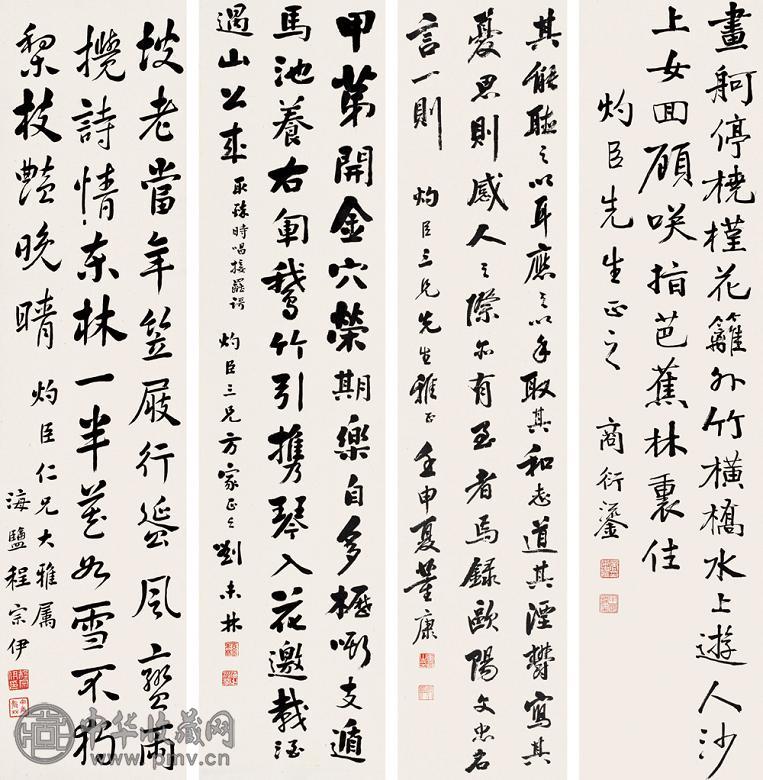 畫舸停橈槿花籬外竹橫橋水上遊人沙
上女回顧咲指芭蕉林裏住
灼臣先生正之 商衍鎏
其能聽之以耳應之以手取其和者道其湮鬱寫其
憂思則感人之際亦有至者焉錄歐陽文忠名
言一則 灼臣三兄先生雅正 壬申夏董康
甲第開金穴榮期樂自多櫪嘶支遁
馬池養右軍鵝竹引攜琴入花邀載酒
過山公來取時唱接 灼臣三兄方家正之 劉春霖
坡老當年笠屐行蜑風蠻雨
攬詩情東林一半花如雪不獨
梨枝艷晚晴 灼臣仁兄大雅属
海鹽程宗伊
中华收藏网
www.pmv.cn